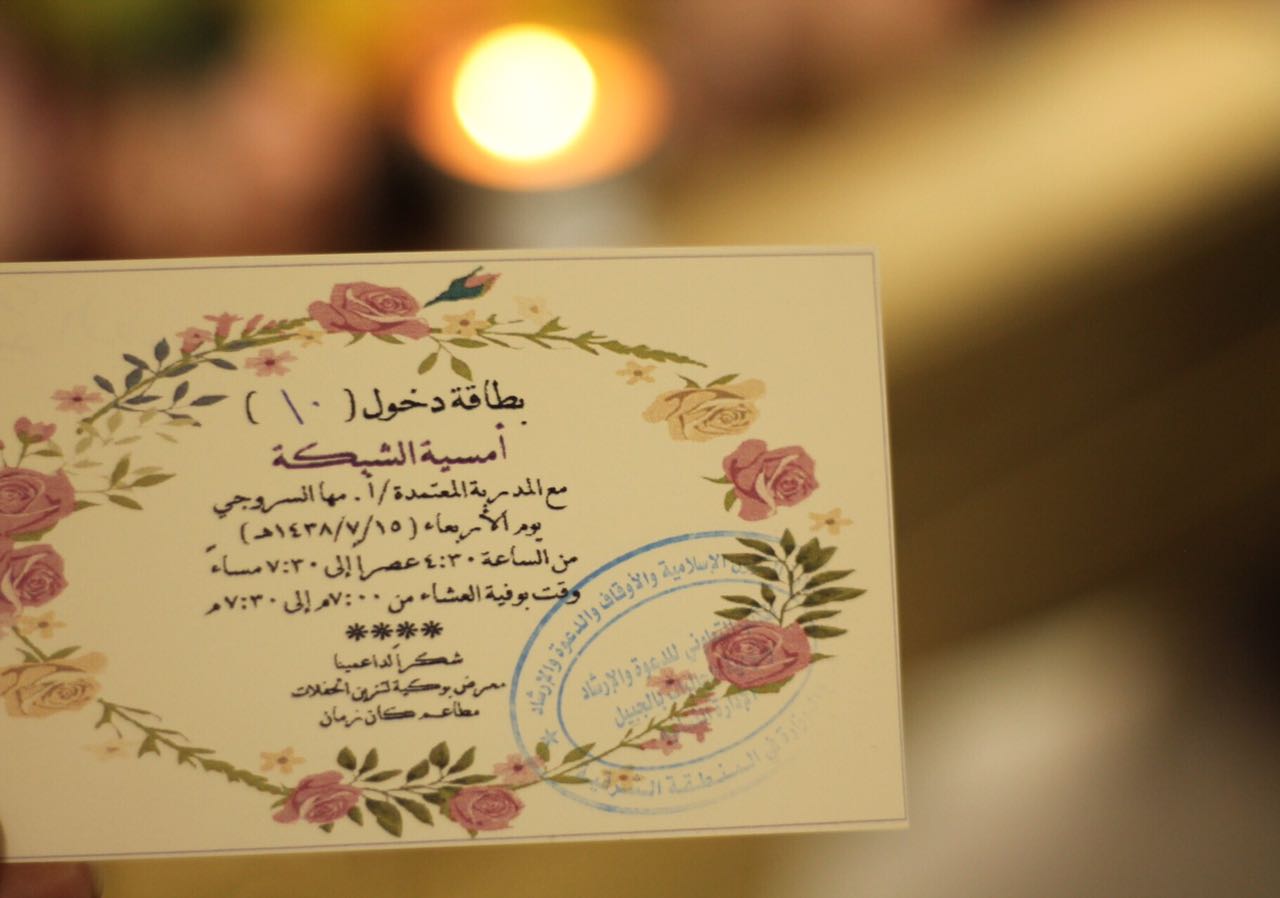 بطاقة دخول ( ١٠ )
أمسية الشبكة
مع المدربة المعتمدة /أ. مها السروجي
يوم الأربعاء ( ١٤٣٨/٧/١٥هـ )
من الساعة ٤:٣٠ عصراً إلى ٧:٣٠ مساءً
وقت بوفية العشاء من ٧:٠٠م إلى ٧:٣٠م
****
شكراً لداعمينا
معرض بوكية لتزين الحفلات
مطاعم كان زمان
الإسلامية والأوقاف والدعوة والإرشاد
التعاوني للدعوة والإرشاد
بالجبيل
الإدارة
المنطقة الشرقية